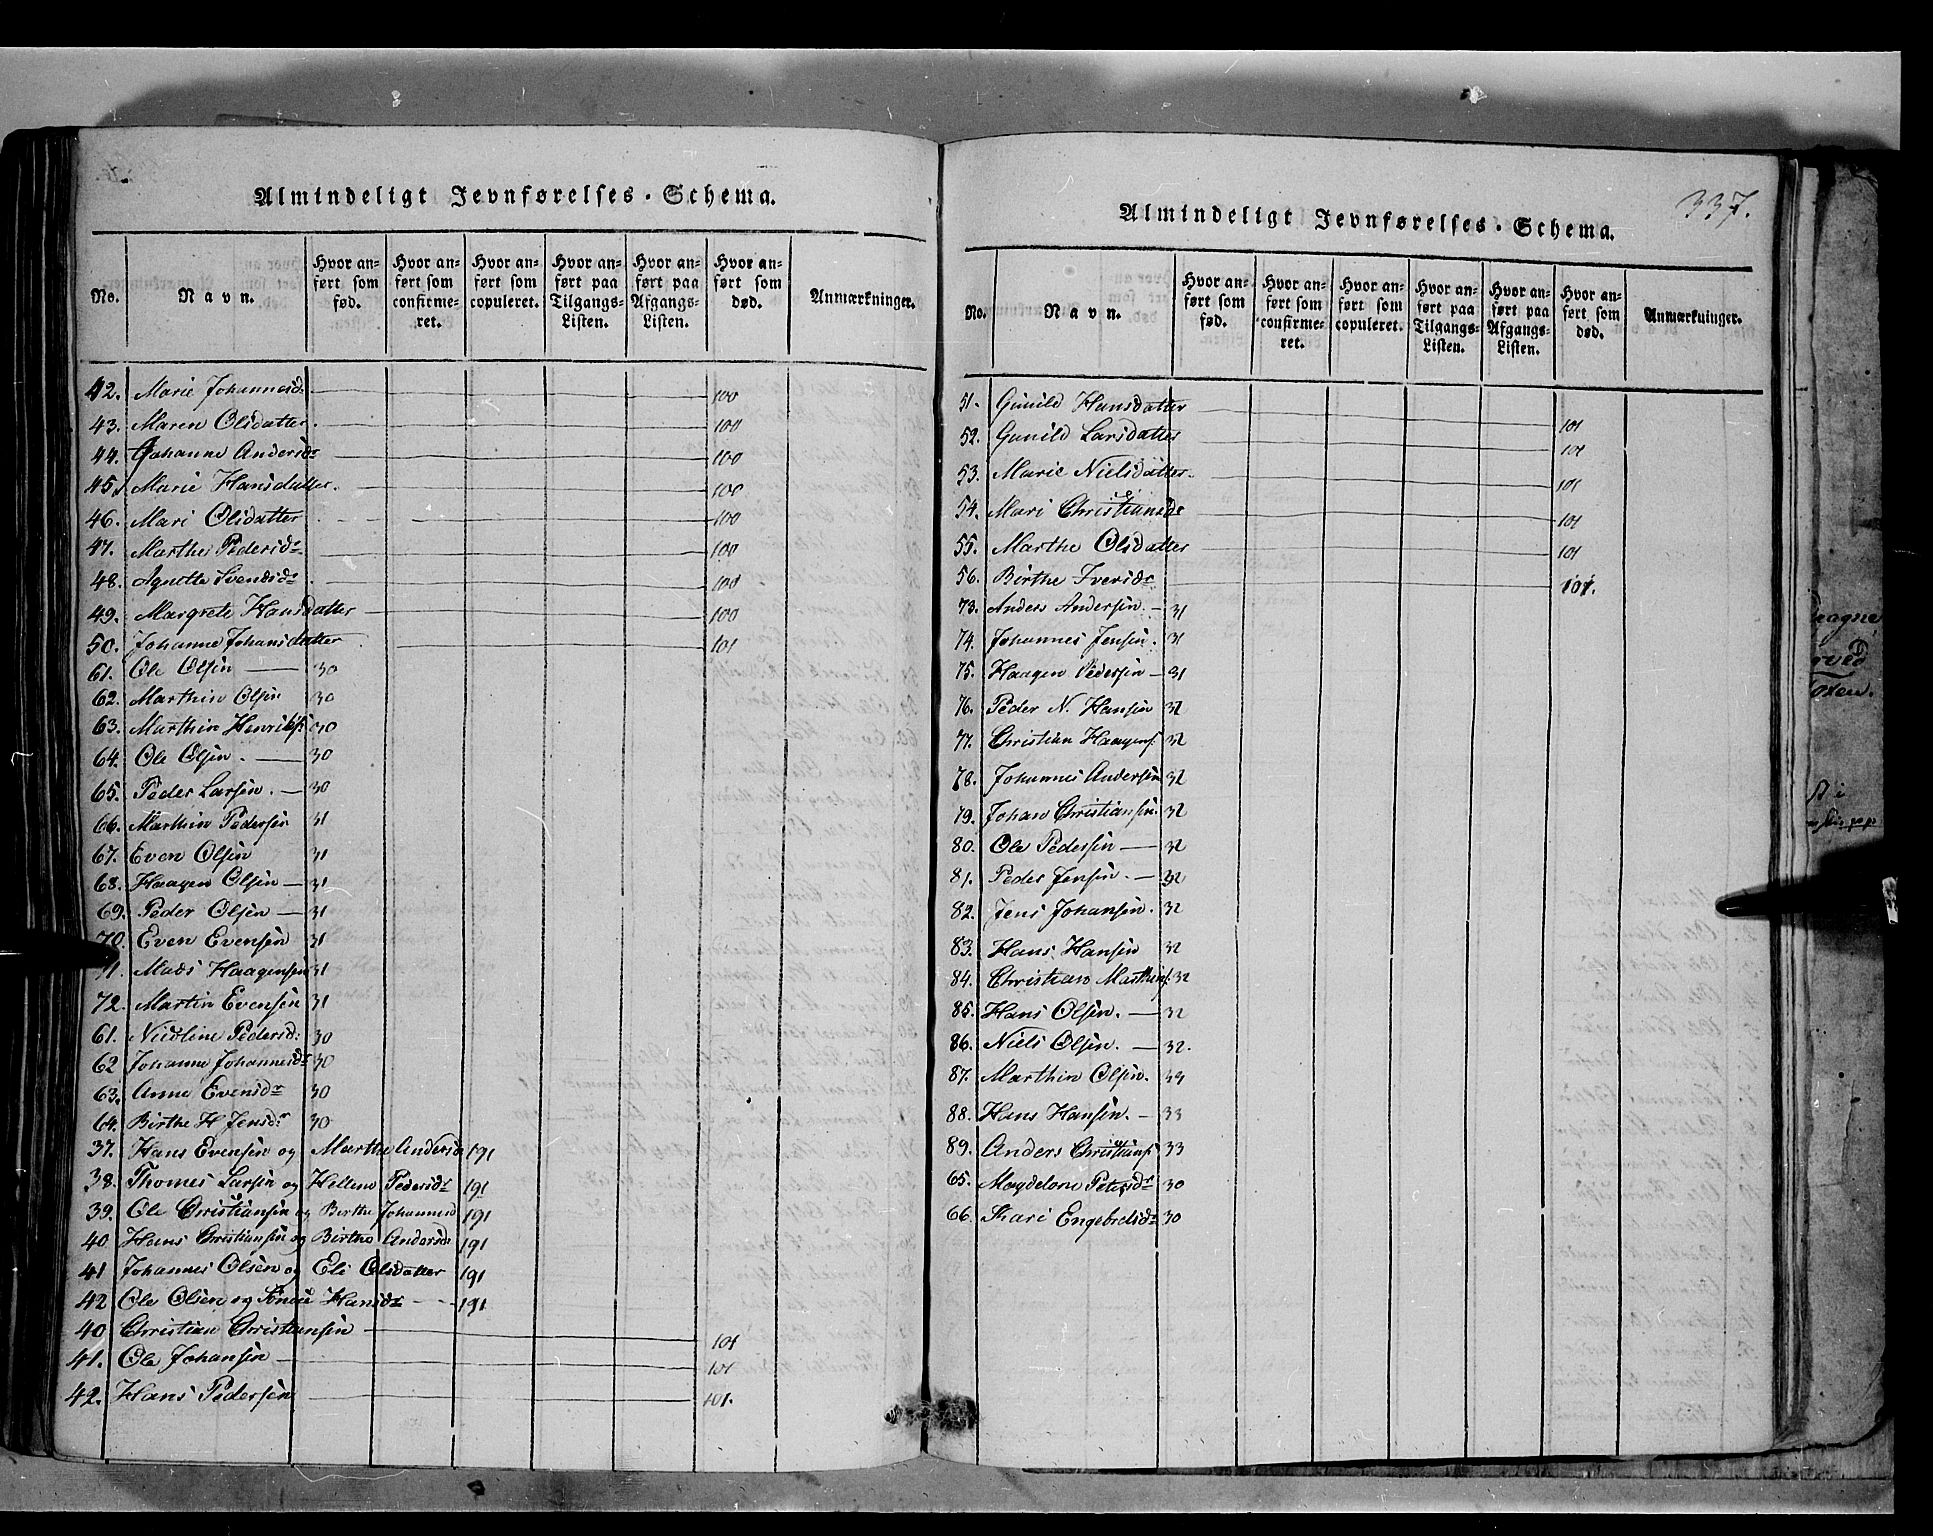 Almindeligt Jevnførelses-Schema.
No. Navn. Hvor anført som fød. Hvor anført som confirmeret. Hvor anført som copuleret. Hvor anført paa Tilgangs-Listen. Hvor anført paa Afgangs-Listen. Hvor anført som død. Anmærkninger.
42. Marie Johannesdr 100
43. Maren Olsdatter. 100
44. Johanne Andersdr 100
45. Marie Hansdatter. 100
46. Mari Olsdatter 100
47. Marthe Pedersdr 100
48. Agnette Svendsdr 100
49. Margrete Hansdatter 100
50. Johanne Johansdatter 101
61. Ole Olsen 30
62. Marthin Olsen 30
63. Marthin Henriks. 30
64. Ole Olsen. 30
65. Peder Larsen. 30
66. Marthin Pedersen 31
67. Even Olsen 31
68. Haagen Olsen 31
69. Peder Olsen 31
70. Even Evensen 31
71. Mads Haagensen 31
72. Martin Evensen 31
61. Nicoline Pedersd. 30
62 Johanne Johannesdr 30
63. Anne Evensdr 30
64. Birthe H Jensdr 30
37. Hans Evensen og Marthe Andersd 191
38. Thomes Larsen og Hellene Pedersdr 191
39. Ole Christiansen og Birthe Johannesd 191
40 Hans Christiansen og Birthe Andersdr 191
41 Johannes Olsen og Eli Olsdatter 191
42 Ole Olsen og Hansdr 191
40 Christian Christiansen 101
41. Ole Johansen 101
42. Hans Pedersen 101.
337.
Almindeligt Jevnførelses-Schema.
No. Navn. Hvor anført som fød. Hvor anført som confirmeret. Hvor anført som copuleret. Hvor anført paa Tilgangs-Listen. Hvor anført paa Afgangs-Listen. Hvor anført som død. Anmærkninger.
51. Gunild Hansdatter 101
52. Gunild Larsdatter 101
53. Marie Nielsdatter. 101
54. Mari Christiansdr 101
55. Marthe Olsdatter 101
56. Birthe Iversdr 101.
73. Anders Andersen. 31
74. Johannes Jensen. 31
75. Haagen Pedersen 31
76. Peder N. Hansen 32
77. Christian Haagens. 32
78. Johannes Andersen 32
79. Johan Christiansen. 32
80. Ole Pedersen 32
81. Peder Jensen. 32
82. Jens Johansen. 32
83. Hans Hansen 32
84. Christian Marthins. 32
85. Hans Olsen. 32
86. Niels Olsen. 32.
87. Marthin Olsen. 33
88. Hans Hansen. 33
89. Anders Christians. 33
65. Magdelone Petersdr 30
66. Kari Engebretsdr 30